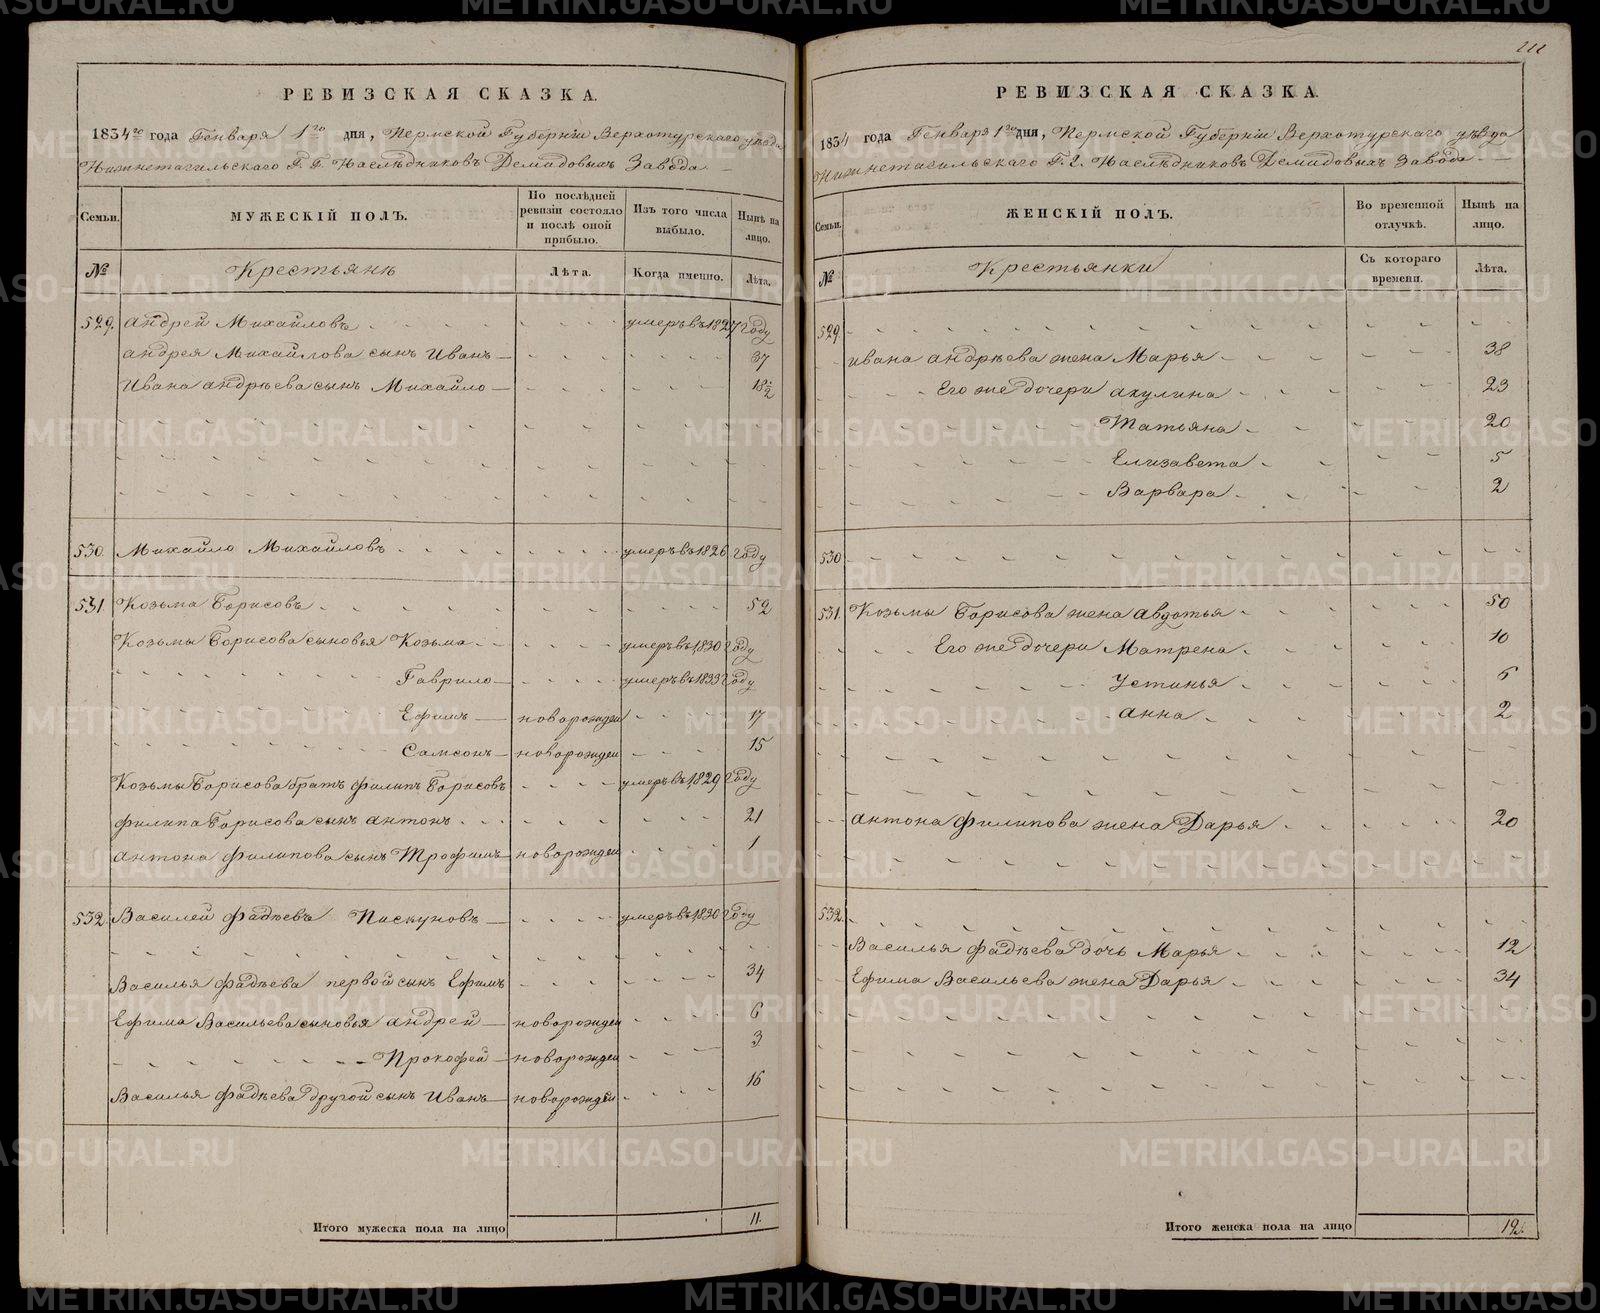 РЕВИЗСКАЯ СКАЗКА.
1834го года Генваря 1го дня, Пермской Губерніи Верхотурскаго уѣзда
Нижнетагильскаго Г. Г. Наслѣдниковъ Демидовыхъ Завода
Семьи. МУЖЕСКІЙ ПОЛЪ. По послѣдней ревизіи состояло и послѣ оной прибыло. Изъ того числа выбыло. Нынѣ на лицо.
№ Крестьянѣ Лѣта. Когда именно. Лѣта.
529. Андрей Михайловъ умеръ въ 1827 году
Андрея Михайлова сынъ Иванъ 37
Ивана Андрѣева сынъ Михайло 18 1/2
530. Михайло Михайловъ умеръ въ 1826 году
531. Козьма Борисовъ 52
Козьмы Борисова сыновья Козьма умеръ въ 1830 году
Гаврило умеръ въ 1833 году
Ефимъ новорожден 17
Самсонъ новорожден 15
Козьмы Борисова братъ Филипъ Борисовъ умеръ въ 1829 году
Филипа Борисова сынъ Антонъ 21
Антона Филипова сынъ Трофимъ новорожден 1
532. Василей Фадѣевъ Пискуновъ умеръ въ 1830 году
Василья Фадѣева первой сынъ Ефимъ 34
Ефима Васильева сыновья Андрей новорожден 6
Прокофей новорожден 3
Василья Фадѣева другой сынъ Иванъ новорожден 16
Итого мужеска пола на лицо 11.
222
РЕВИЗСКАЯ СКАЗКА.
1834 года Генваря 1го дня, Пермской Губерніи Верхотурскаго уѣзда
Нижнетагильскаго Г. Г. Наслѣдниковъ Демидовыхъ Завода
Семьи. ЖЕНСКІЙ ПОЛЪ. Во временной отлучкѣ. Нынѣ на лицо.
№ Крестьянки Съ котораго времени. Лѣта.
529
Ивана Андрѣева жена Марья 38
Его же дочери Акулина 23
Татьяна 20
Елизавета 5
Варвара 2
530
531. Козьмы Борисова жена Авдотья 50
Его же дочери Матрена 10
Устинья 6
Анна 2
Антона Филипова жена Дарья 20
532.
Василья Фадѣева дочь Марья 12
Ефима Васильева жена Дарья 34
Итого женска пола на лицо 12.
METRIKI.GASO-URAL.RU